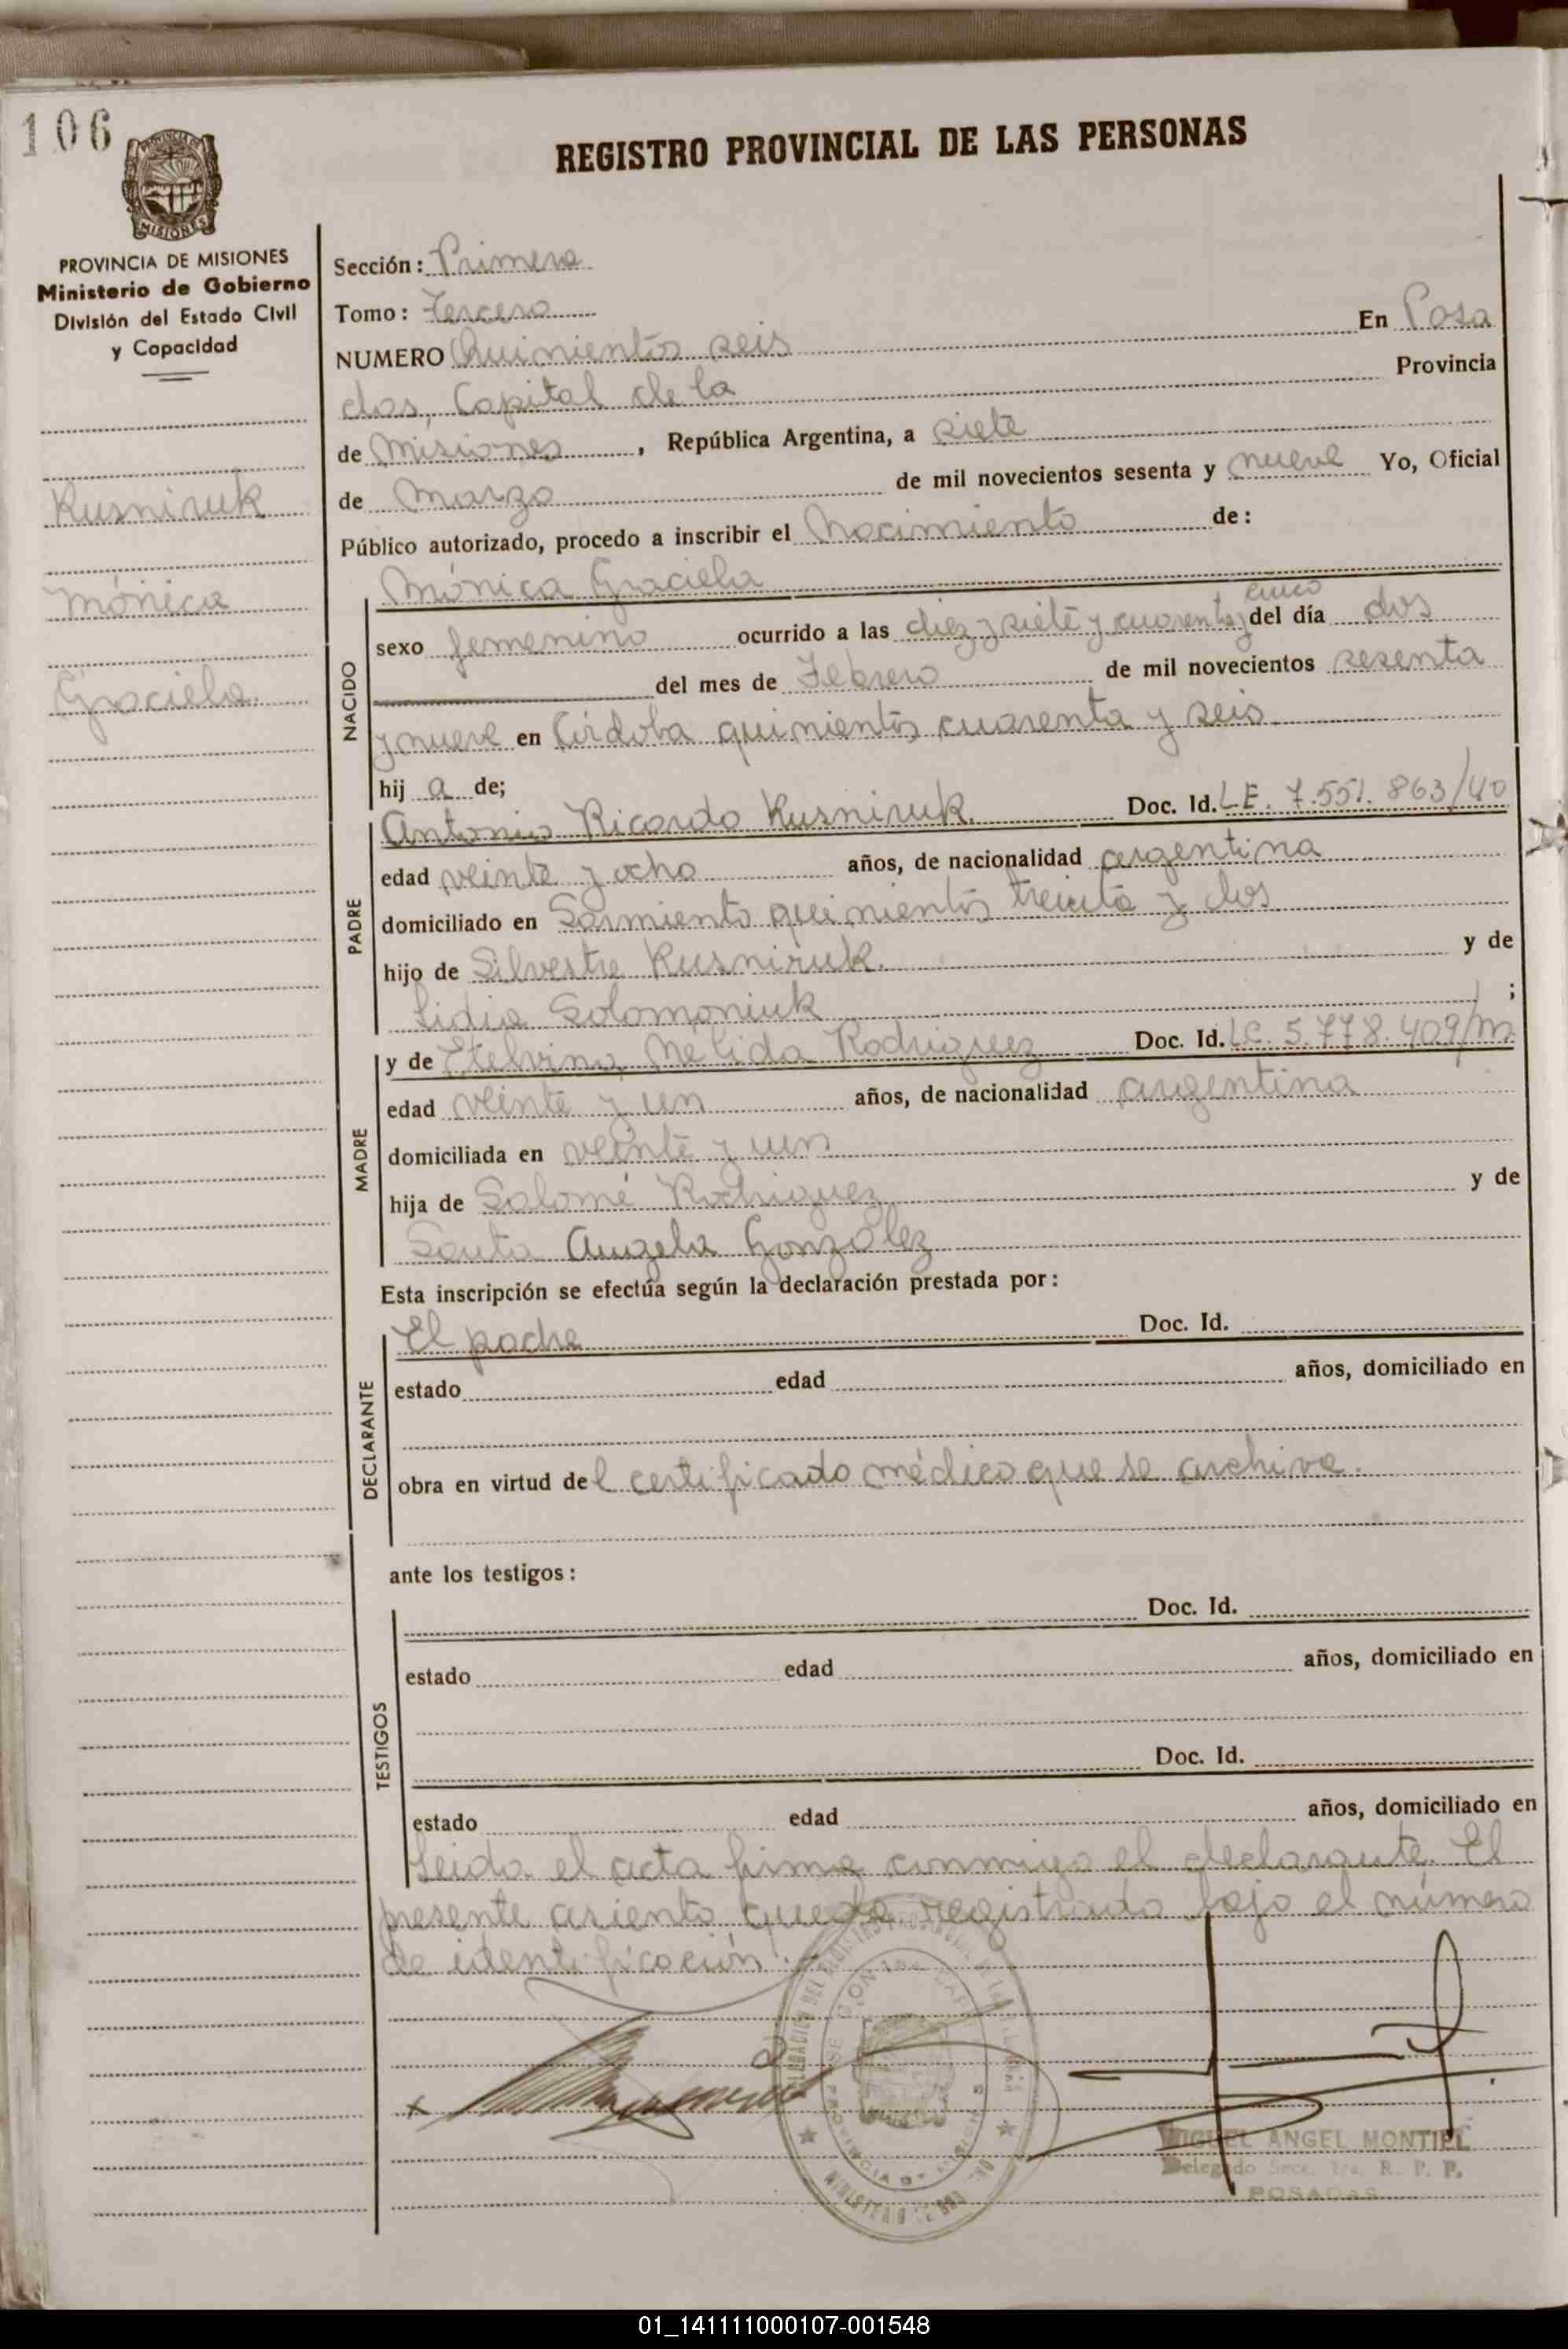 106
REGISTRO PROVINCIAL DE LAS PERSONAS
MISIONES
PROVINCIA DE MISIONES
Ministerio de Gobierno
División del Estado Civil
y Capacidad
Kusniruk
Mónica
Graciela.
Sección: Primera
Tomo: Tercero
NUMERO Quinientos seis En Posa
dos, Capital de la Provincia
de Misiones, República Argentina, a siete
de Marzo de mil novecientos sesenta y nueve Yo, Oficial
Público autorizado, procedo a inscribir el Nacimiento de:
Mónica Graciela
NACIDO
cinco
sexo femenino ocurrido a las diez y siete y cuarenta y del día dos
del mes de Febrero de mil novecientos sesenta
y nueve en Córdoba quinientos cuarenta y seis
hij a de;
PADRE
Antonio Ricardo Kusniruk. Doc. Id. L.E. 7.551.863/40
edad veinte y ocho años, de nacionalidad argentina
domiciliado en Sarmiento quinientos treinta y dos
hijo de Silvestre Kusniruk. y de
Lidia Solomoniuk ;
MADRE
y de Etelvina Nélida Rodriguez Doc. Id. L.C. 5.778.409/M
edad veinte y un años, de nacionalidad argentina
domiciliada en veinte y un
hija de Salomé Rodriguez y de
Santa Angela González
Esta inscripción se efectúa según la declaración prestada por:
DECLARANTE
El padre Doc. Id.
estado edad años, domiciliado en
obra en virtud del certificado médico que se archiva.
ante los testigos:
TESTIGOS
Doc. Id.
estado edad años, domiciliado en
Doc. Id.
estado edad años, domiciliado en
Leida el acta firma conmigo el declarante. El
presente asiento queda registrado bajo el número
de identificación:
MIGUEL ANGEL MONTIEL
Delegado Secc. 1ra. R. P. P.
POSADAS
01_141111000107-001548